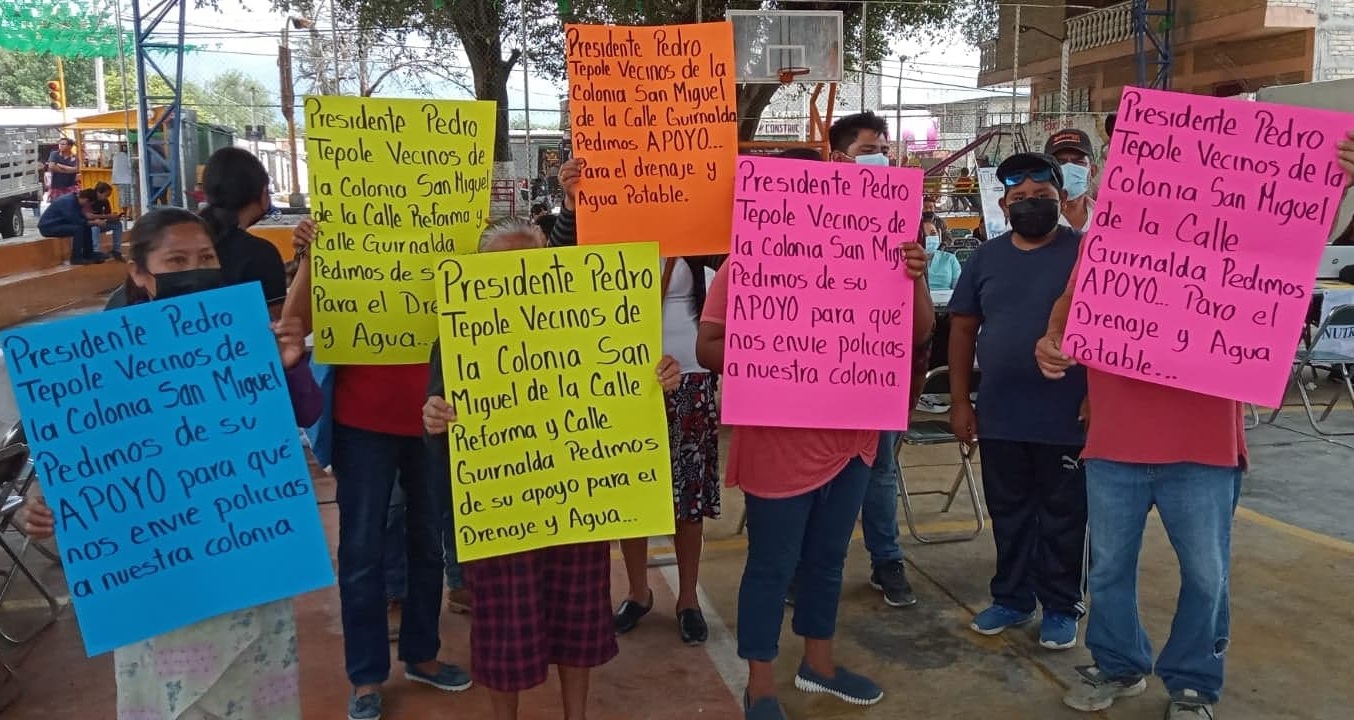 Presidente Pedro
Tepole Vecinos de
la Colonia San Miguel
Pedimos de su
APOYO para qué
nos envie policias
a nuestra colonia
Presidente Pedro
Tepole Vecinos de
la Colonia San Miguel
de la Calle Reforma y
Calle Guirnalda
Pedimos de s
Para el Dre
y Agua...
Presidente Pedro
Tepole Vecinos de
la Colonia San
Miguel de la Calle
Reforma y Calle
Guirnalda Pedimos
de su apoyo para el
Drenaje y Agua...
Presidente Pedro
Tepole Vecinos de la
Colonia San Miguel
de la Calle Guirnalda
Pedimos APOYO...
Para el drenaje y
Agua Potable.
Presidente Pedro
Tepole Vecinos de
la Colonia San Migu
Pedimos de su
APOYO para qué
nos envie policias
a nuestra colonia.
Presidente Pedro
Tepole Vecinos de la
Colonia San Miguel
de la Calle
Guirnalda Pedimos
APOYO... Para el
Drenaje y Agua
Potable...
CONSTRUC
NUTRI